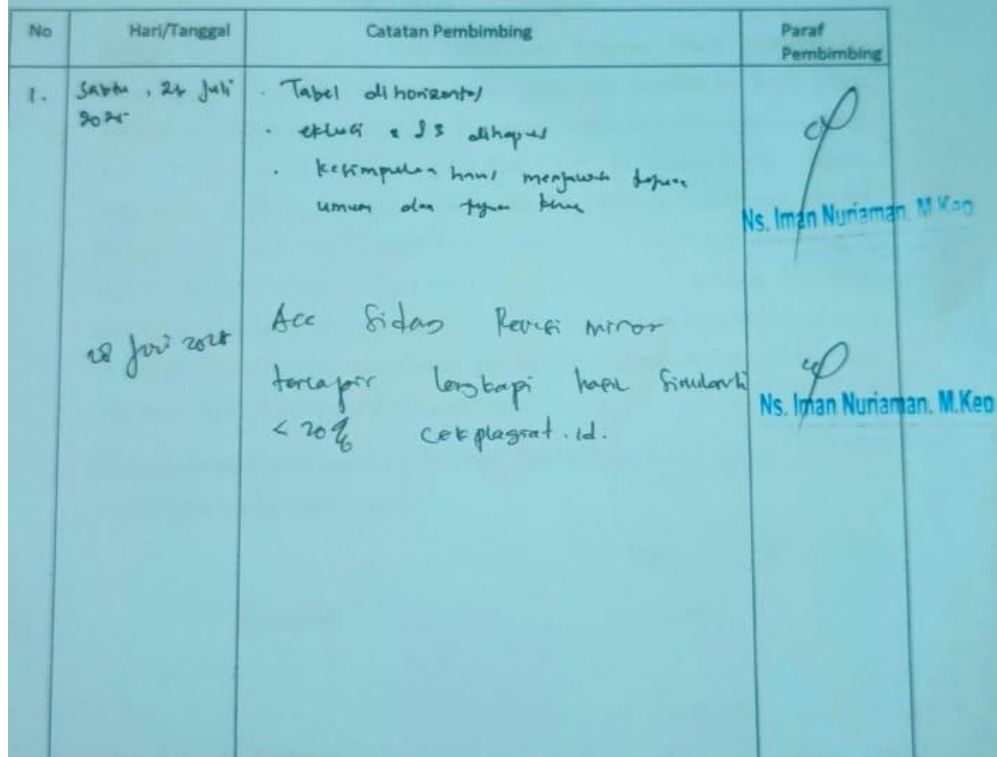 No Hari/Tanggal Catatan Pembimbing Paraf Pembimbing
1. Sabtu, 26 Juli 2025
. Tabel dihorizontal
. eklusi dihapus
. Kesimpulan harus menjawab tujuan
umum dan tujuan
Ns. Iman Nuriaman. M.Kep
28 Juli 2025
Acc Sidang Revisi minor
lengkapi hasil
< 20% cekplagiat.id.
Ns. Iman Nuriaman. M.Kep